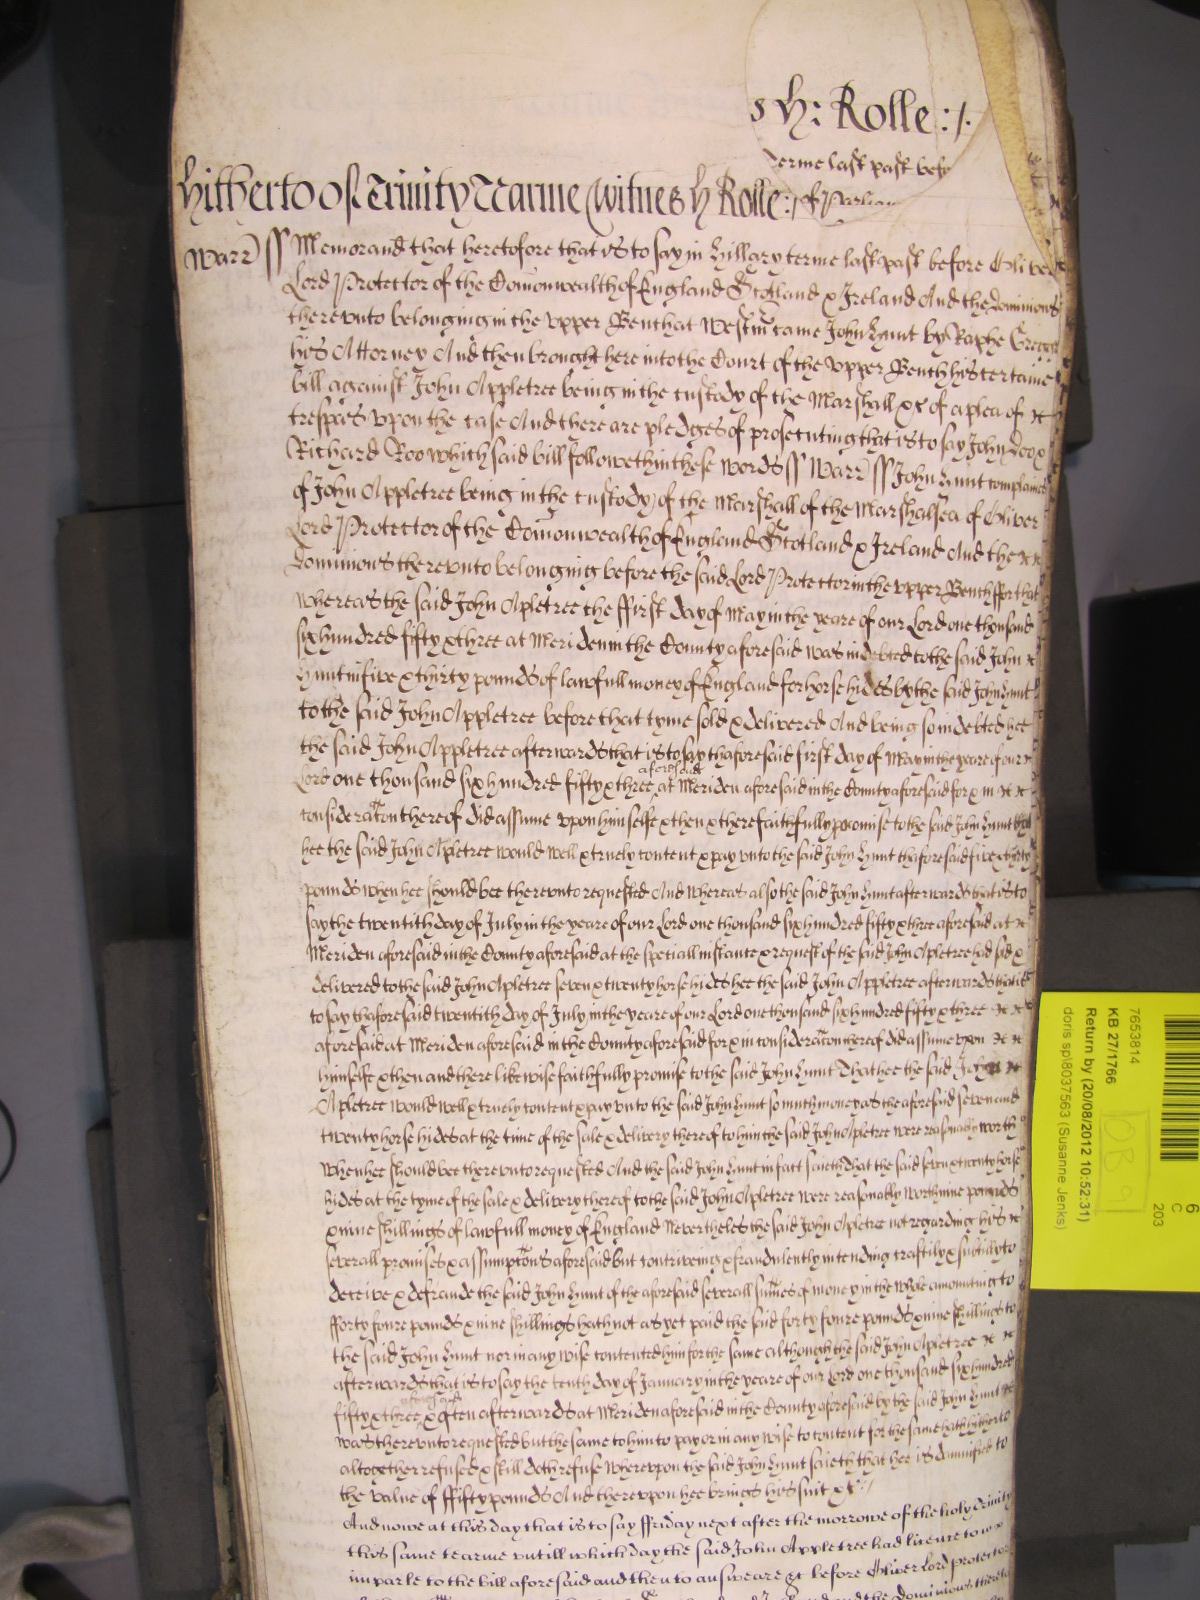 s H: Rolle :/.
terme last past befo
Hitherto of Trinity Tearme Witnes H Rolle :/ of Parliam
Warr ss Memorand that heretofore that is to say in Hillary terme last past before Oliver
Lord Protector of the Comonwealth of England Scotland & Ireland And the dominions
thereunto belonging in the upper Bench at Westm came John Hunt by Raphe Gregge
his Attorney And then brought here into the Court of the upper Bench his certaine
bill against John Appletree being in the custody of the Marshall &c of a plea of
trespas upon the case And there are pledges of prosecuting that is to say John Doo &
Richard Roo which said bill followeth in these words ss Warr ss John Hunt complaines
of John Appletree being in the custody of the Marshall of the Marshalsea of Oliver
Lord Protector of the Comonwealth of England Scotland & Ireland And the
Dominions thereunto belonging before the said Lord Protector in the upper Bench ffor that
whereas the said John Apletree the ffirst day of May in the yeare of our Lord one thousand
six hundred fifty & three at Meriden in the County aforesaid was indebted to the said John
Hunt in five & thirty pounds of lawfull money of England for horse hides by the said John Hunt
to the said John Appletree before that tyme sold & delivered And being so indebted hee
the said John Appletree afterwards that is to say thaforesaid first day of May in the yeare of our
Lord one thousand six hundred fifty & three aforesaid at Meriden aforesaid in the County aforesaid for & in
consideracon thereof did assume upon himselfe & then & there faithfully promise to the said John Hunt that
hee the said John Apletree would well & truely content & pay unto the said John Hunt thaforesaid five & thirty
pounds when hee should bee thereunto requested And whereas also the said John Hunt afterwards that is to
say the twentith day of July in the yeare of our Lord one thousand six hundred fifty & three aforesaid at
Meriden aforesaid in the County aforesaid at the speciall instance & request of the said John Apletree had sold &
delivered to the said John Apletree seven & twenty horse hides hee the said John Appletree afterwards that is
to say thaforesaid twentith day of July in the yeare of our Lord one thousand six hundred fifty & three
aforesaid at Meriden aforesaid in the County aforesaid for & in consideracon thereof did assume upon
himselfe & then and there likewise faithfully promise to the said John Hunt That hee the said John
Apletree would well & truely content & pay unto the said John Hunt so much money as the aforesaid seven and
twenty horse hides at the time of the sale & delivery thereof to him the said John Apletree were reasonably worth
when hee should bee thereunto requested And the said John Hunt in fact saieth that the said seven & twenty horse
hides at the tyme of the sale & delivery thereof to the said John Apletree were reasonably worth nine pounds
& nine shillings of lawfull money of England Nevertheles the said John Apletree not regarding his
severall promises & assumptons aforesaid but contriveing & fraudulently intending craftily & subtilly to
deceive & defraude the said John Hunt of the aforesaid severall sumes of money in the whole amounting to
fforty foure pounds & nine shillings hath not as yet paid the said forty foure pounds & nine shillings to
the said John Hunt nor in any wise contented him for the same although the said John Apletree
afterwards that is to say the tenth day of January in the yeare of our Lord one thousand six hundred
fifty & three aforesaid & often afterwards at Meriden aforesaid in the County aforesaid by the said John Hunt
was thereunto requested but the same to him to pay or in any wise to content for the same hath hitherto
altogether refused & still doth refuse Whereupon the said John Hunt saieth that hee is damnified to
the value of ffifty pounds And thereupon hee brings his suit &c :/
And nowe at this day that is to say ffriday next after the morrowe of the holy Trinity
this same tearme untill which day the said John Appletree had licence to
imparle to the bill aforesaid and then to answeare &c before Oliver Lord protector
and the Dominions thereto
6
C
203
7653814
KB 27/1766
Return by (20/08/2012 10:52:31)
doris sp\8037563 (Susanne Jenks)